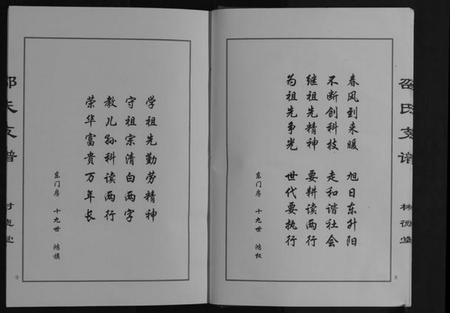 邵氏支谱
春风到来暖 旭日东升阳
不断创科技 走和谐社会
继祖先精神 要耕读两行
为祖先争光 世代要执行
东门房 十九世 鸿权
学祖先勤劳精神
守祖宗清白两字
教儿孙科读两行
荣华富贵万年长
东门房 十九世 鸿禎
邵氏支谱